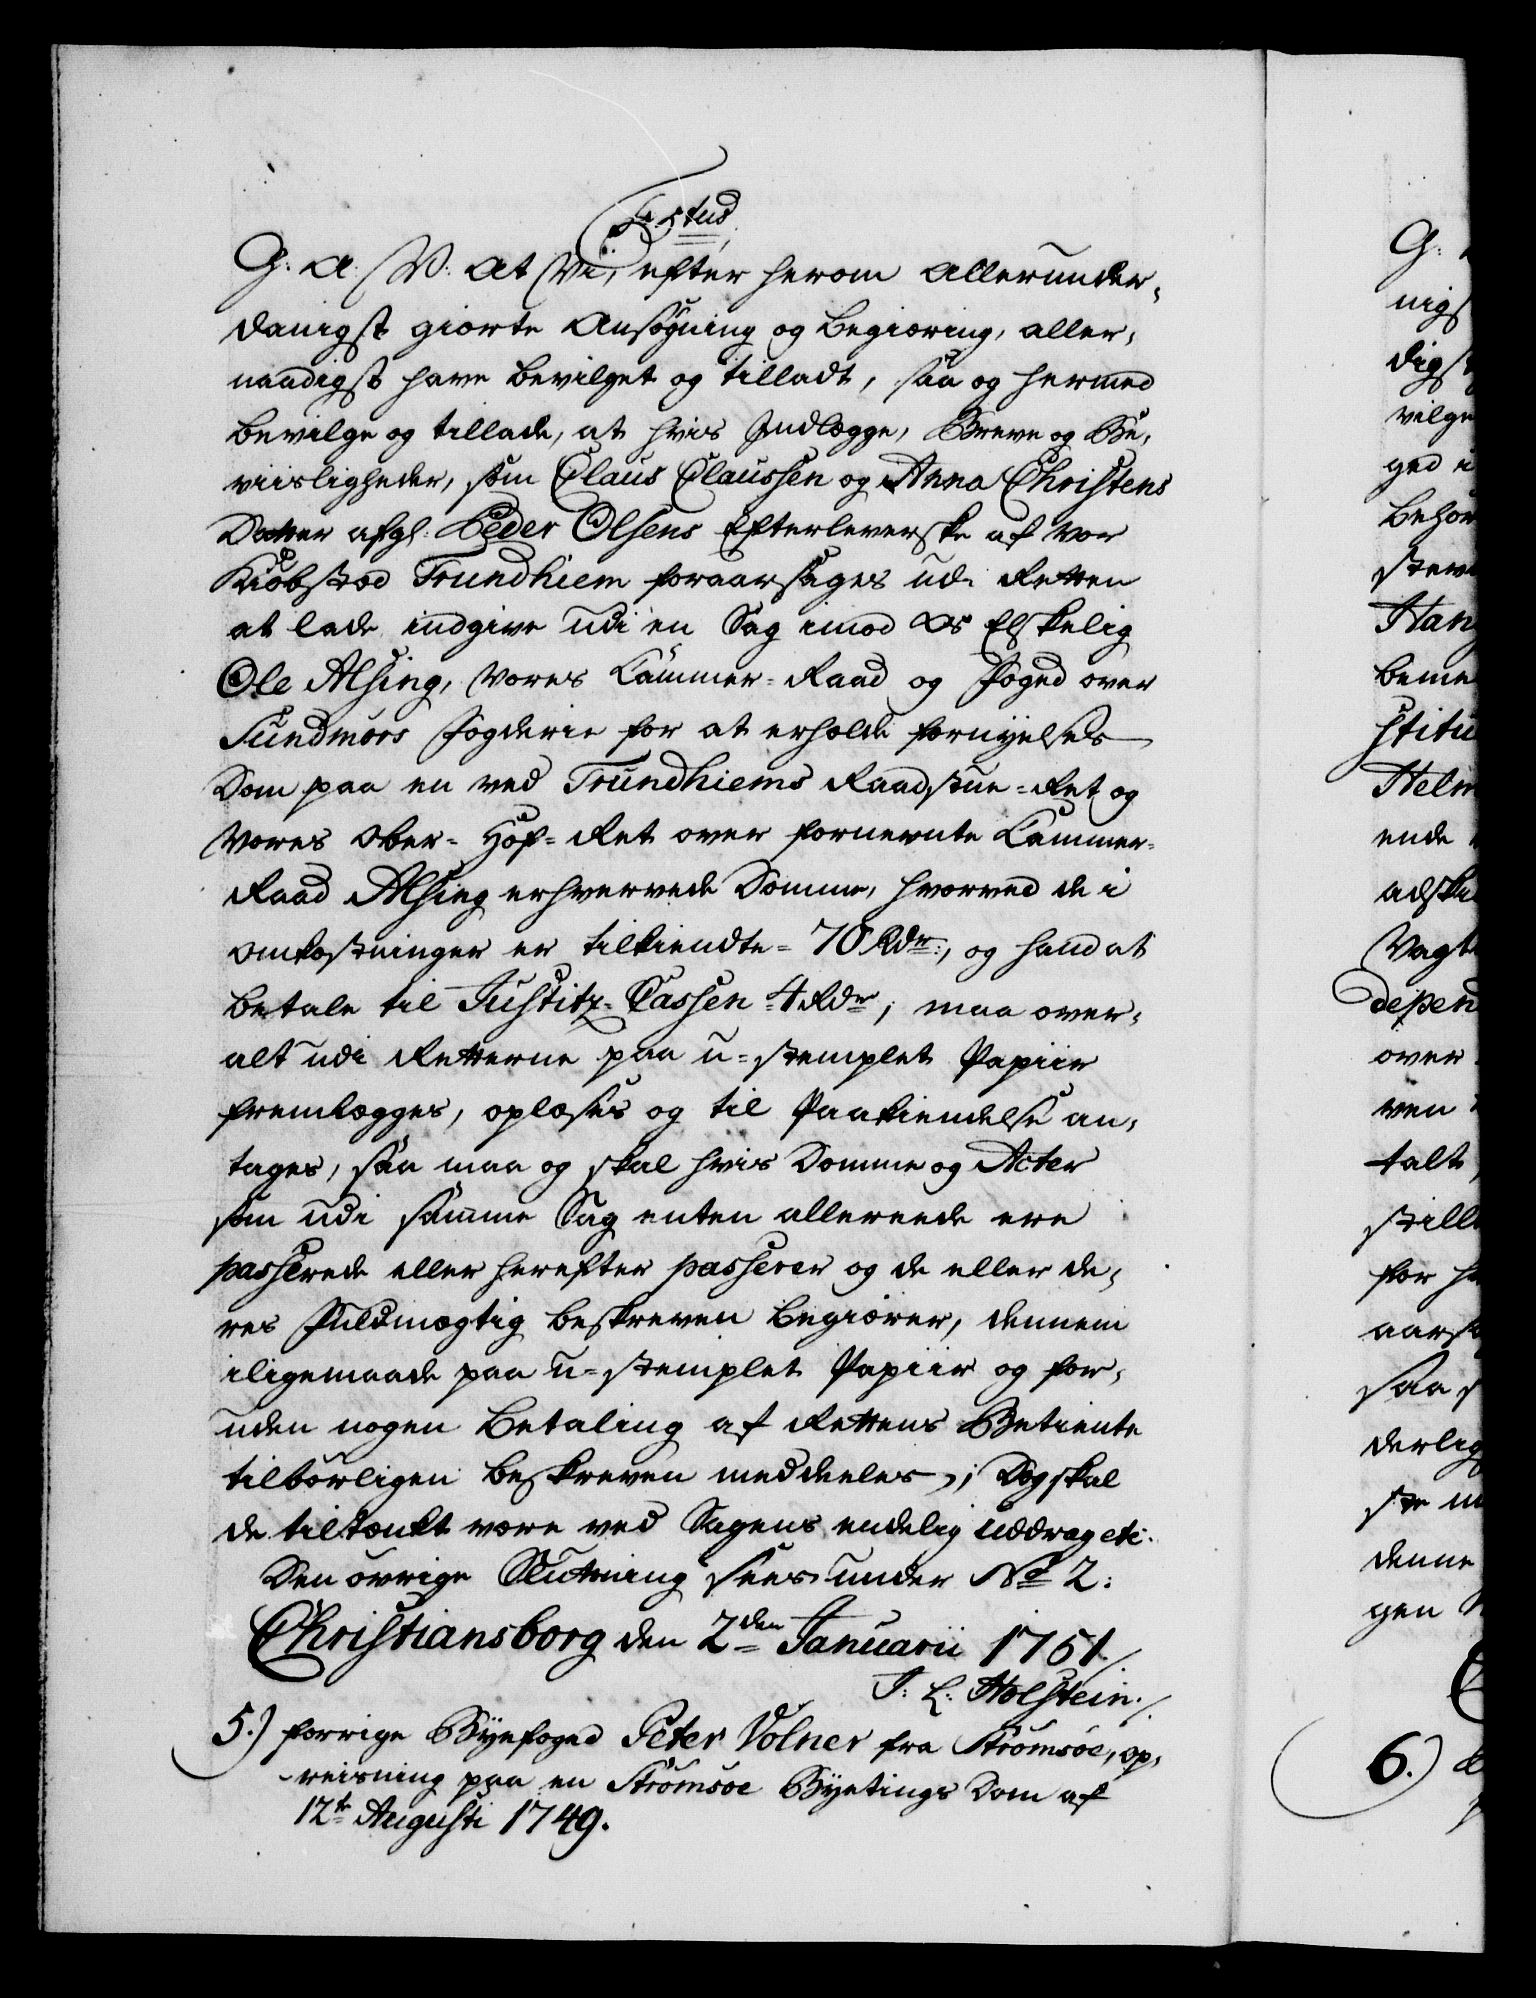 F. 5tus
G. A. W. At Vi, efter herom allerunder-
danigst giorte Ansøgning og begiæring, aller-
naadigst have bevilget og tilladt, saa og hermed
bevilge og tillade, at hvis Indlægge, Breve og Be-
viisligheder, som Claus Claussen og Anna Christens
Datter afgl: Peder Olsens Efterleverske af vor
Kiøbstæd Trundhiem foraarsages udi Retten
at lade indgive udi en Sag imod Os Elskelig
Ole Alsing, vores Cammer-Raad og Foged over
Sundmørs Fogderie for at erholde fornyelses
Dom paa en ved Trundhiems Raadstue-Ret og
vores Ober-Hof-Ret over fornevnte Cammer-
Raad Alsing erhvervede Domme, hvorved de i
omkostninger er tilkiendte 70 Rdr:, og hand at
betale til Justitz-Cassen 4 Rdr; maa over-
alt udi Retterne paa u-stemplet Papiir
fremlægges, oplæses og til Paakiendelse an-
tages, saa maa og skal hvis Domme og Acter
som udi samme Sag enten allereede ere
passerede eller herefter passerer og de eller de-
res Fuldmægtig beskreven begiærer, dennem
iligemaade paa u-stemplet Papiir og for-
uden nogen betaling af Rettens Betiente
tilbørligen beskreven meddeeles; Dog skal
de tiltænkt være ved Sagens endelig uddrag etc.
Den øvrige Slutning sees under No 2:
Christiansborg den 2den Januarii 1751./
J. L. Holstein./
5.) forrige Byefoged Peter Volner fra Strømsøe, op-
reisning paa en Strømsøe Byetings Dom af
12te Augusti 1749.
G:
nigs
digst
vilge
ged i
behør
steve
Han
beme
stitu
Helm
ende
adski
Vagt
depen
over
ven
talt
still
for h
aars
saa s
derlig
ste
denne
gen
6.)